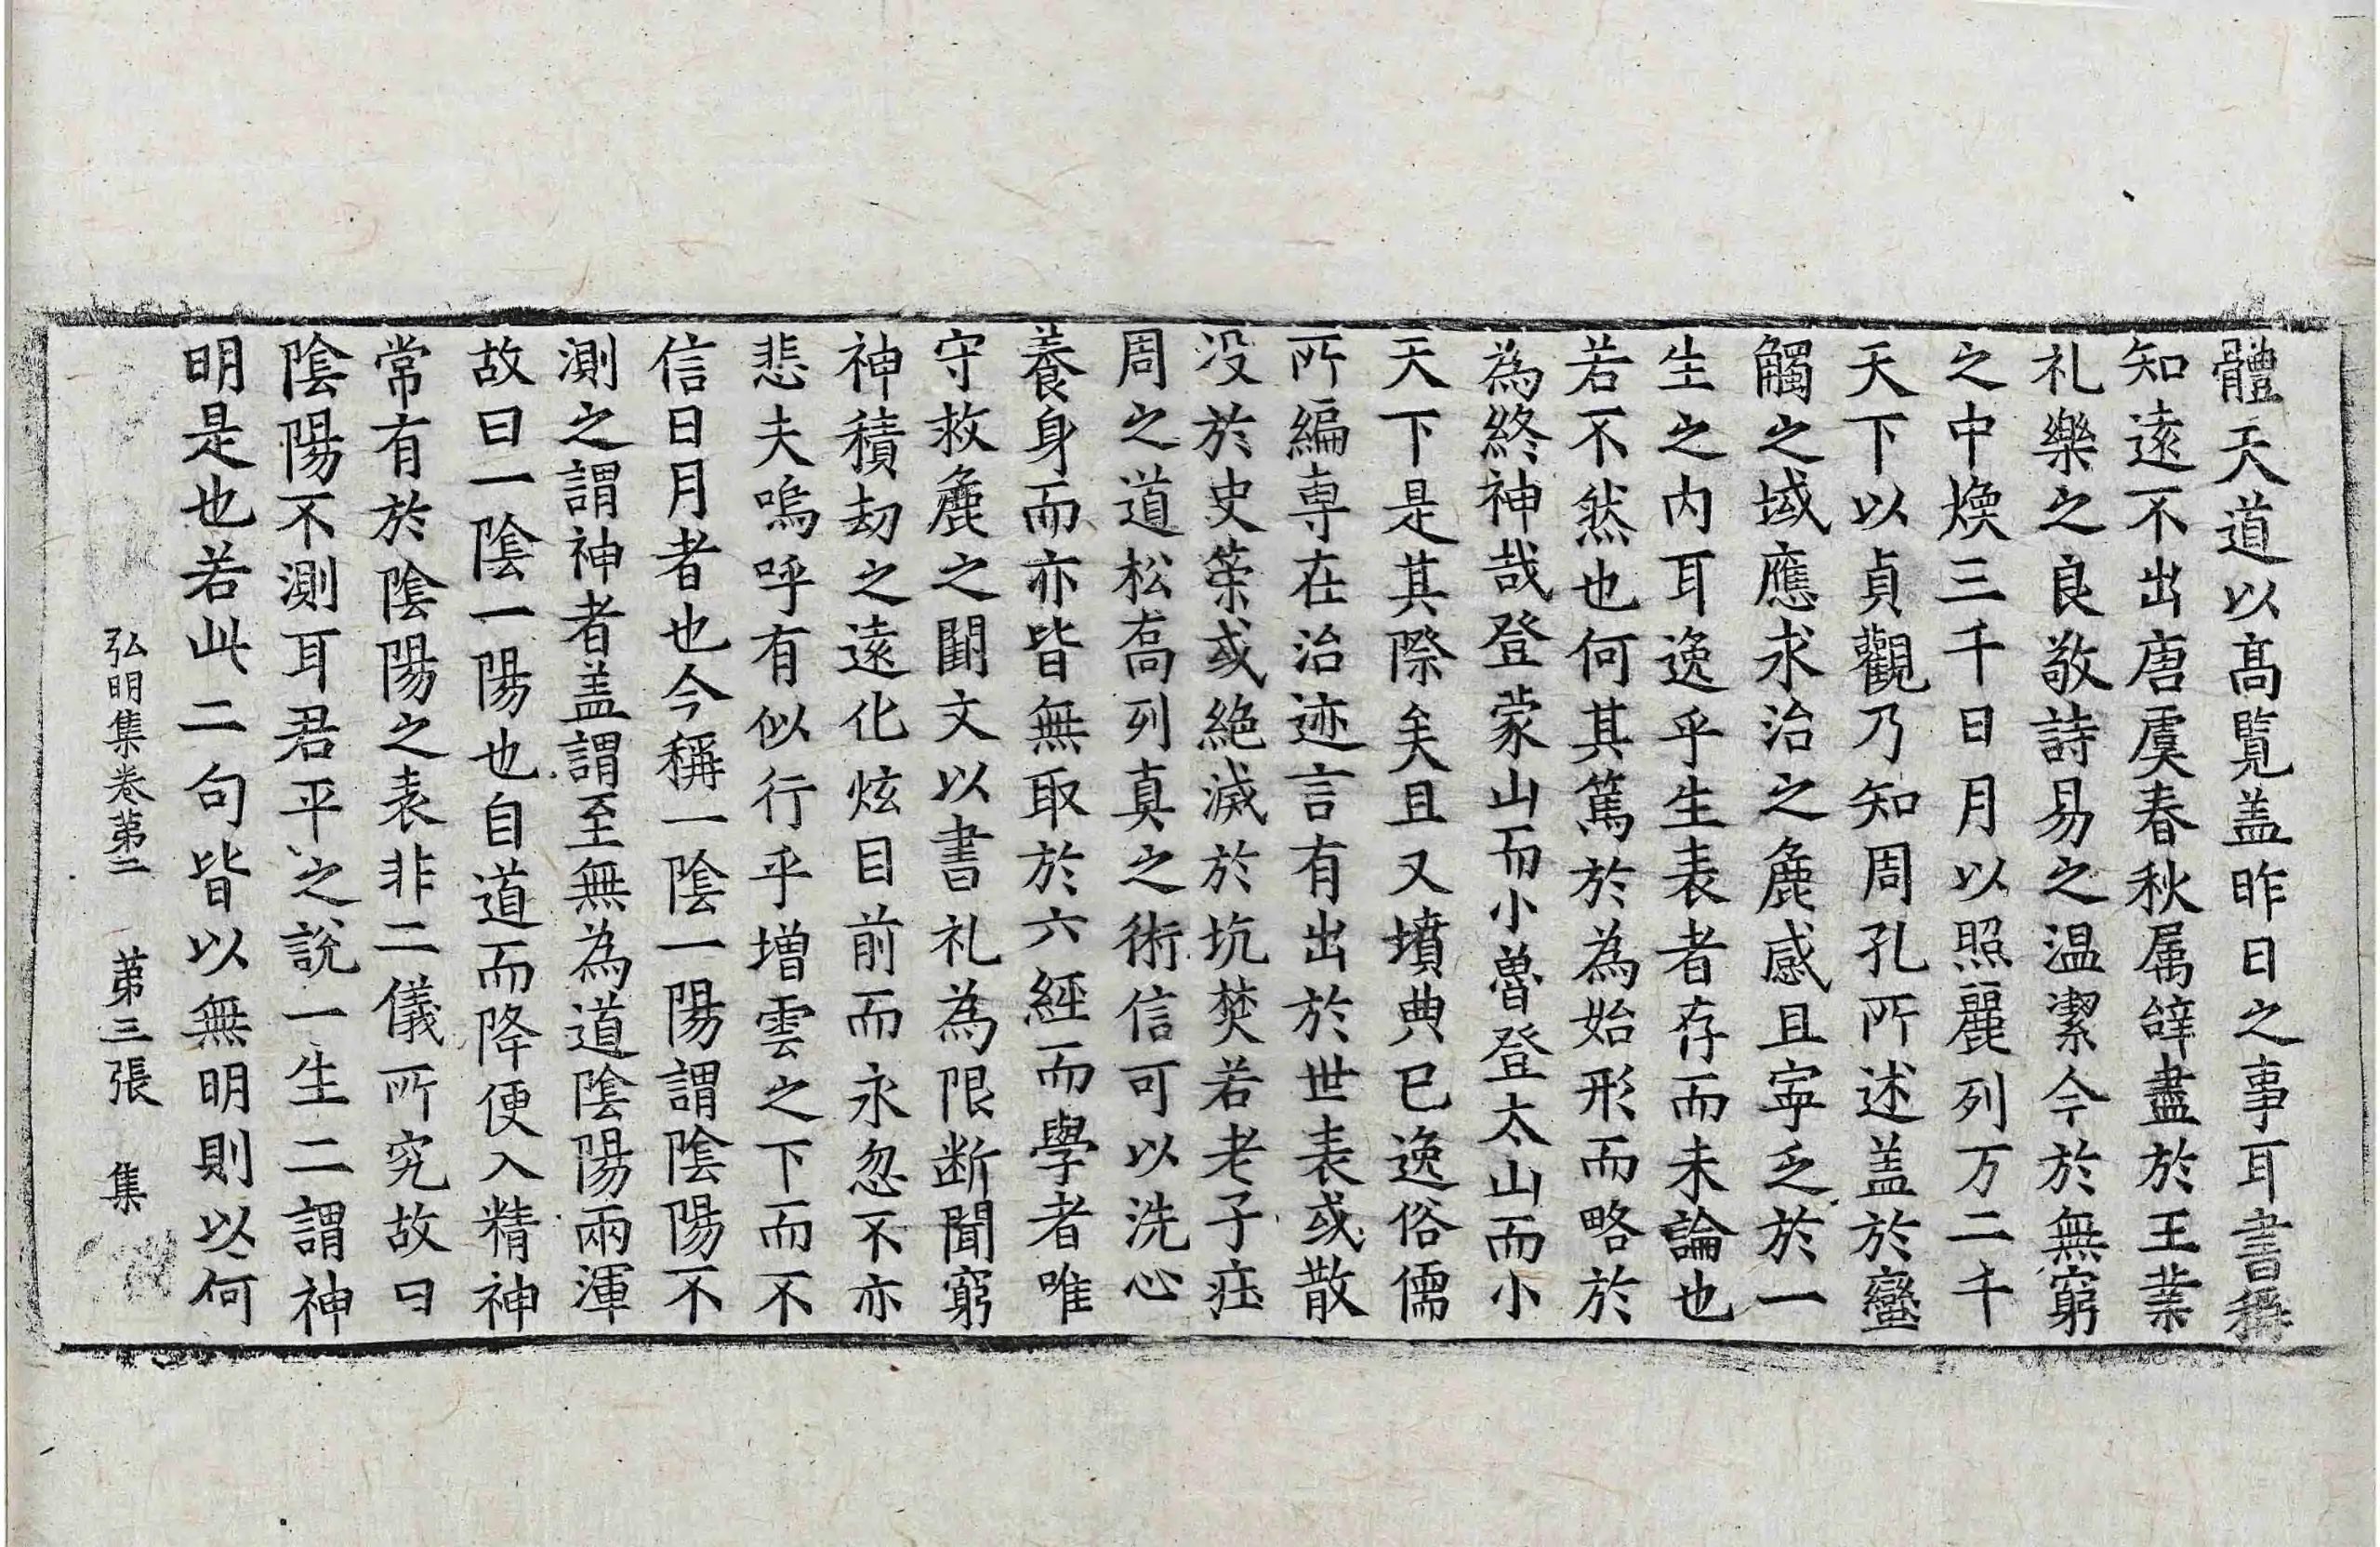 體天道以髙覧盖昨日之事耳書稱
知逺不出唐虞春秋属辝盡於王業
礼樂之良敬詩易之温潔今於無窮
之中煥三千日月以照麗列万二千
天下以貞觀乃知周孔所述盖於蠻
觸之域應求治之麁感且寧乏於一
生之内耳逸乎生表者存而未論也
若不然也何其篤於為始形而略於
為終神哉登蒙山而小魯登太山而小
天下是其際矣且又墳典已逸俗儒
所編専在治迹言有出於世表或散
没於史䇿或絶滅於坑焚若老子莊
周之道松髙列真之術信可以洗心
養身而亦皆無取於六經而學者唯
守救麁之闕文以書礼為限断聞窮
神積劫之逺化炫目前而永忽不亦
悲夫嗚呼有似行乎増雲之下而不
信日月者也今稱一隂一陽謂隂陽不
測之謂神者盖謂至無為道隂陽兩渾
故曰一隂一陽也自道而降便入精神
常有於隂陽之表非二儀所究故曰
隂陽不測耳君平之說一生二謂神
明是也若此二句皆以無明則以何
弘明集卷苐二 苐三張 集